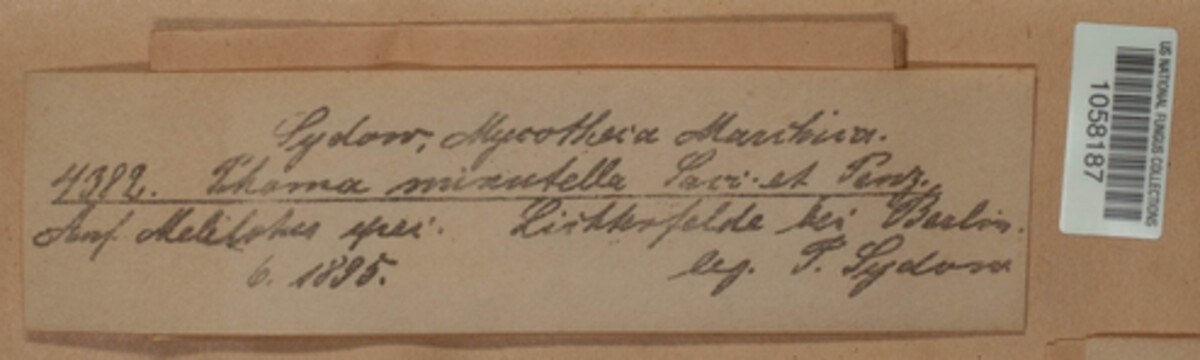 Sydow, Mycotheca Marchica.
4382. Phoma minutella Sacc. et Penz.
Auf Melilotus spec. Lichterfelde bei Berlin.
6. 1895. leg. P. Sydow
US NATIONAL FUNGUS COLLECTIONS
1058187